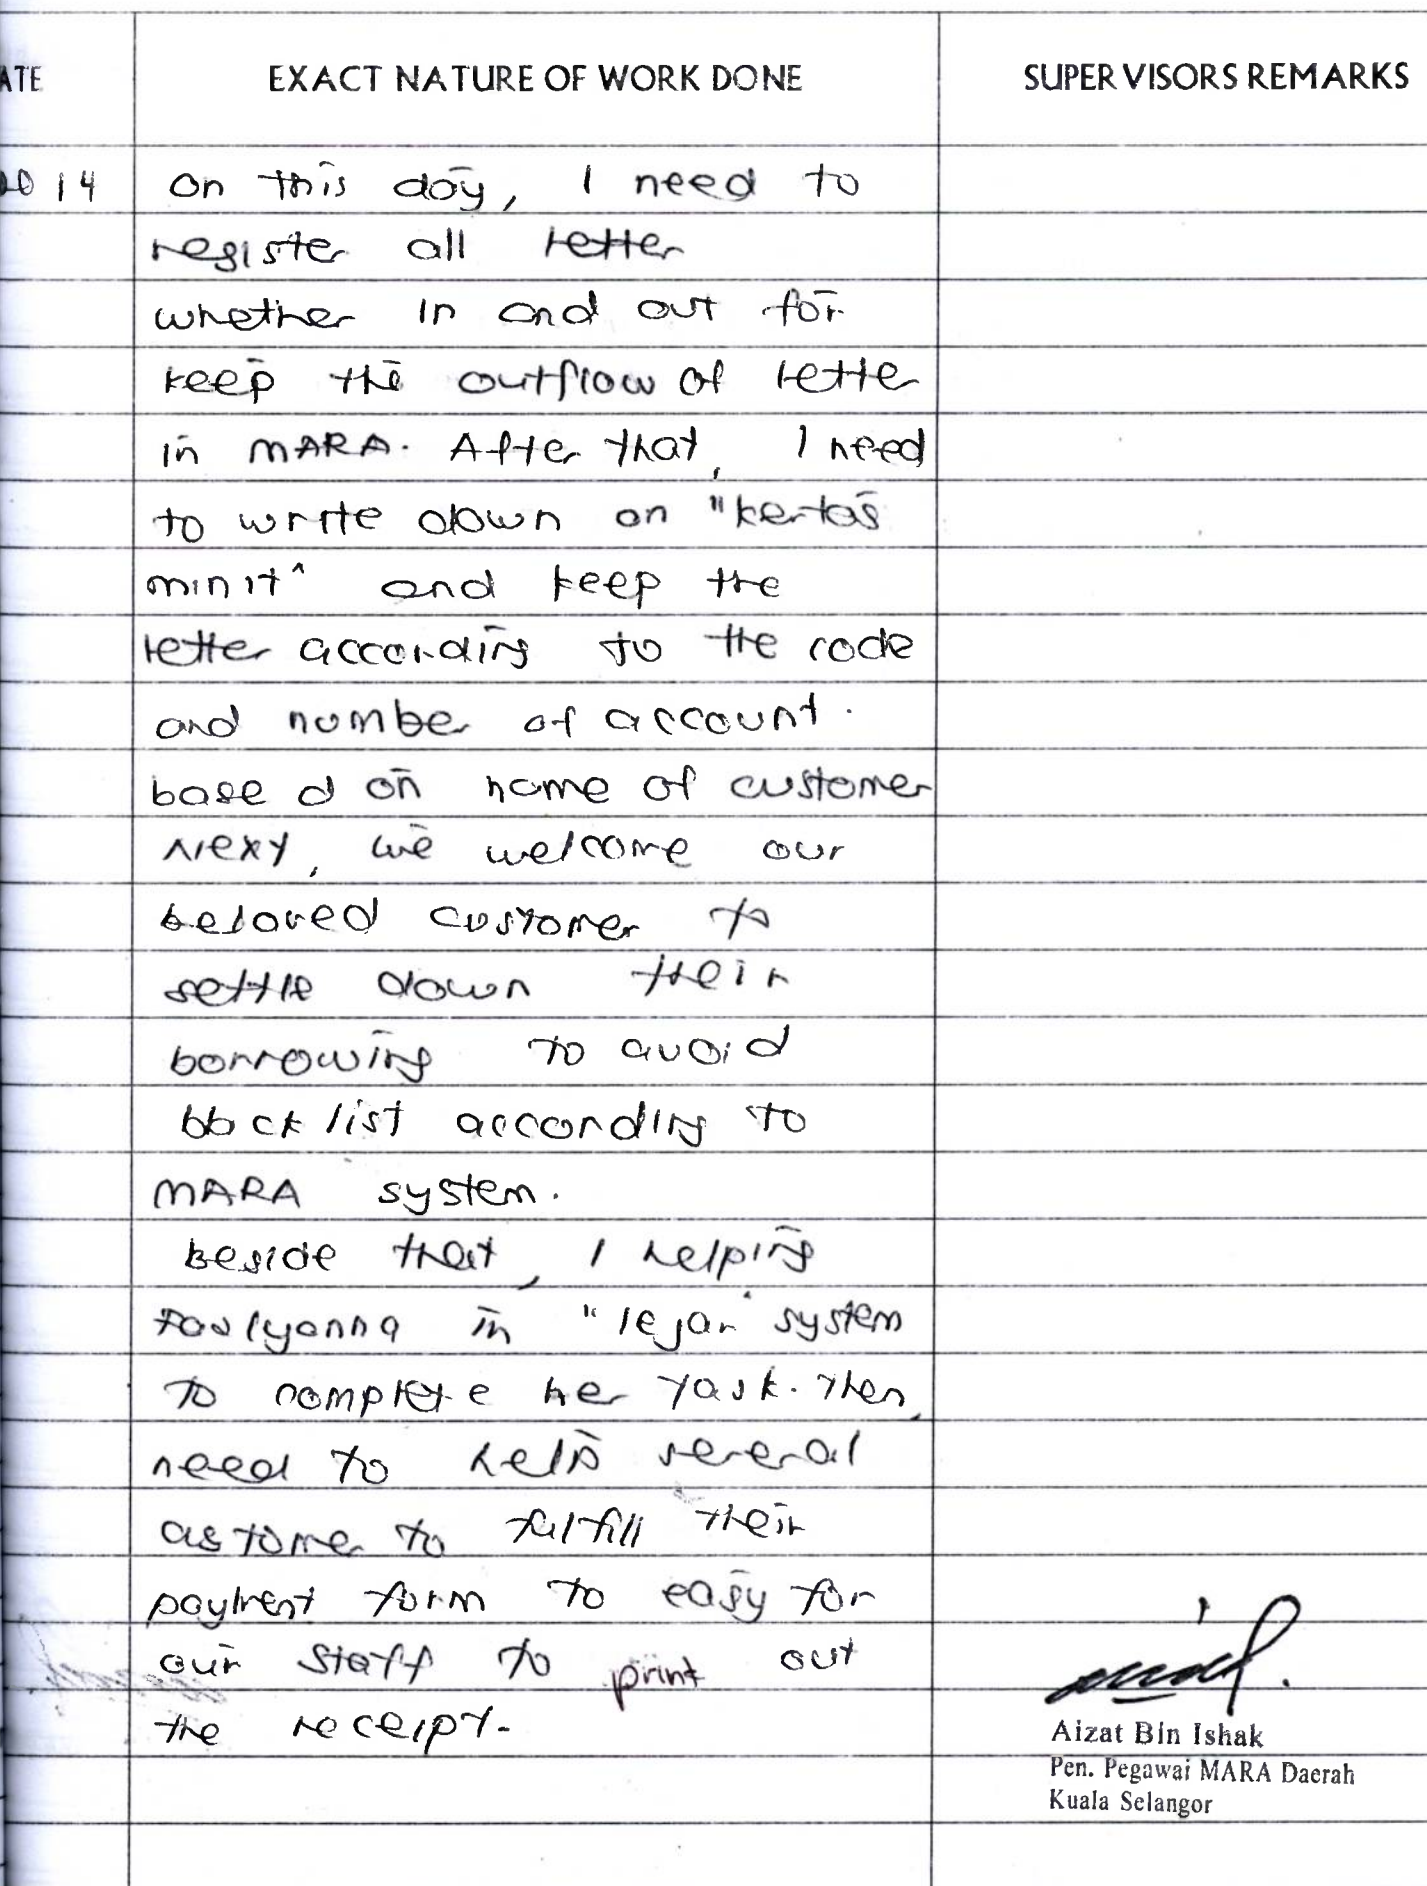 ATE EXACT NATURE OF WORK DONE SUPERVISORS REMARKS
2014 On this day, I need to
register all letter
whether in and out for
keep the outflow of lette
in MARA. After that, I need
to write down on "kertas
minit" and keep the
letter according to the code
and number of account.
based on name of customer
Nexy, we welcome our
beloved customer to
settle down their
borrowing to avoid
blacklist according to
MARA system.
beside that, I helping
in "lejar" system
to complete her task. Then,
need to help several
customer to fulfill their
payment form to easy for
our staff to print out
the receipt.
Aizat Bin Ishak
Pen. Pegawai MARA Daerah
Kuala Selangor